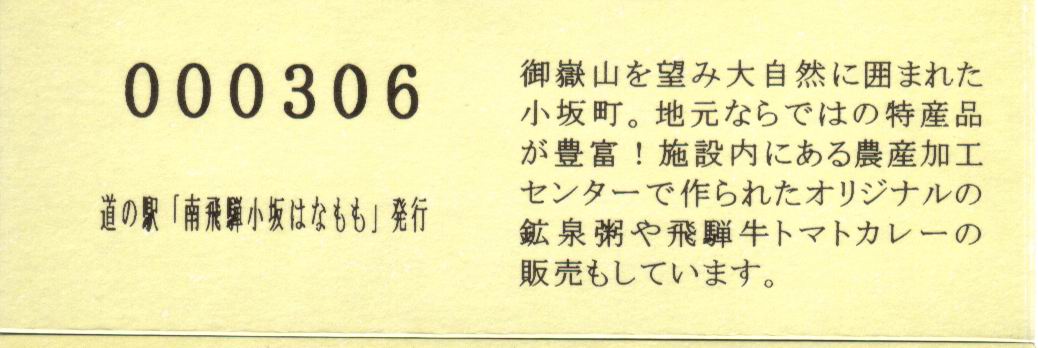 000306
道の駅「南飛騨小坂はなもも」発行
御嶽山を望み大自然に囲まれた
小坂町。地元ならではの特産品
が豊富！施設内にある農産加工
センターで作られたオリジナルの
鉱泉粥や飛騨牛トマトカレーの
販売もしています。